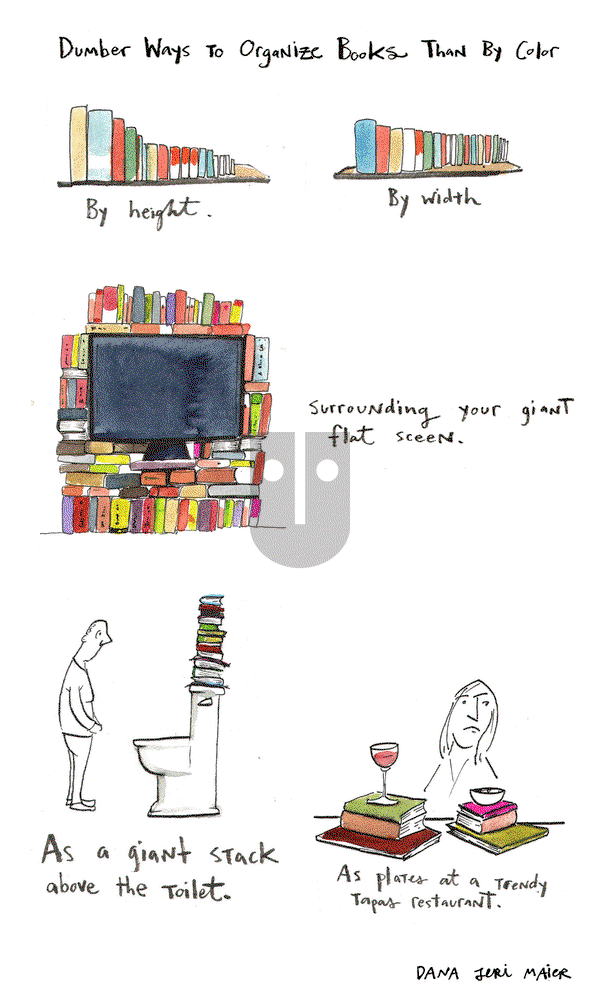 Dumber Ways To Organize Books Than By Color
By height.
By width
Surrounding your giant
flat sceen.
As a giant stack
above the toilet.
As plates at a trendy
tapas restaurant.
Dana Jeri Maier